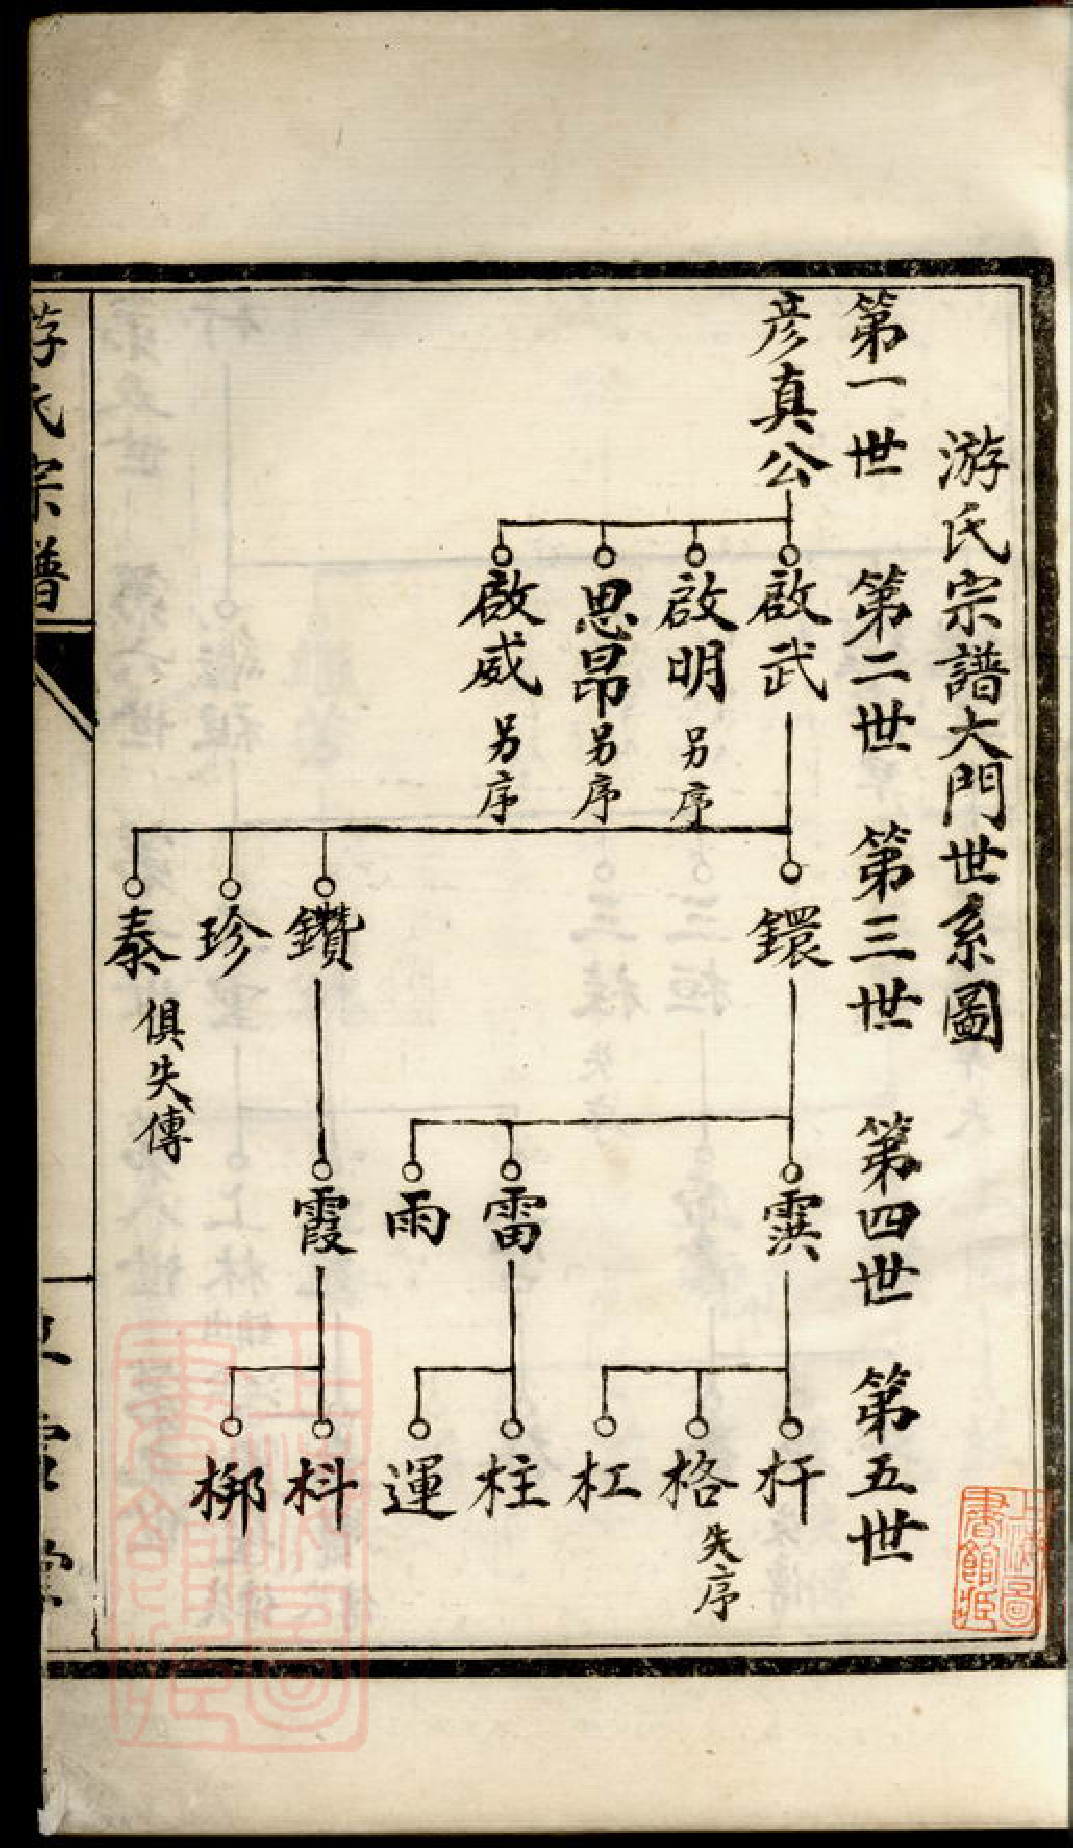 游氏宗譜大門世系圖
第一世 第二世 第三世 第四世 第五世
彦真公
啟武
啟明 另序
思昂 另序
啟威 另序
鐶
鑽
珍
泰 俱失傳
霟
雷
雨
霞
杆
格 失序
杠
柱
運
枓
梆
游氏宗譜
上海圖書館藏